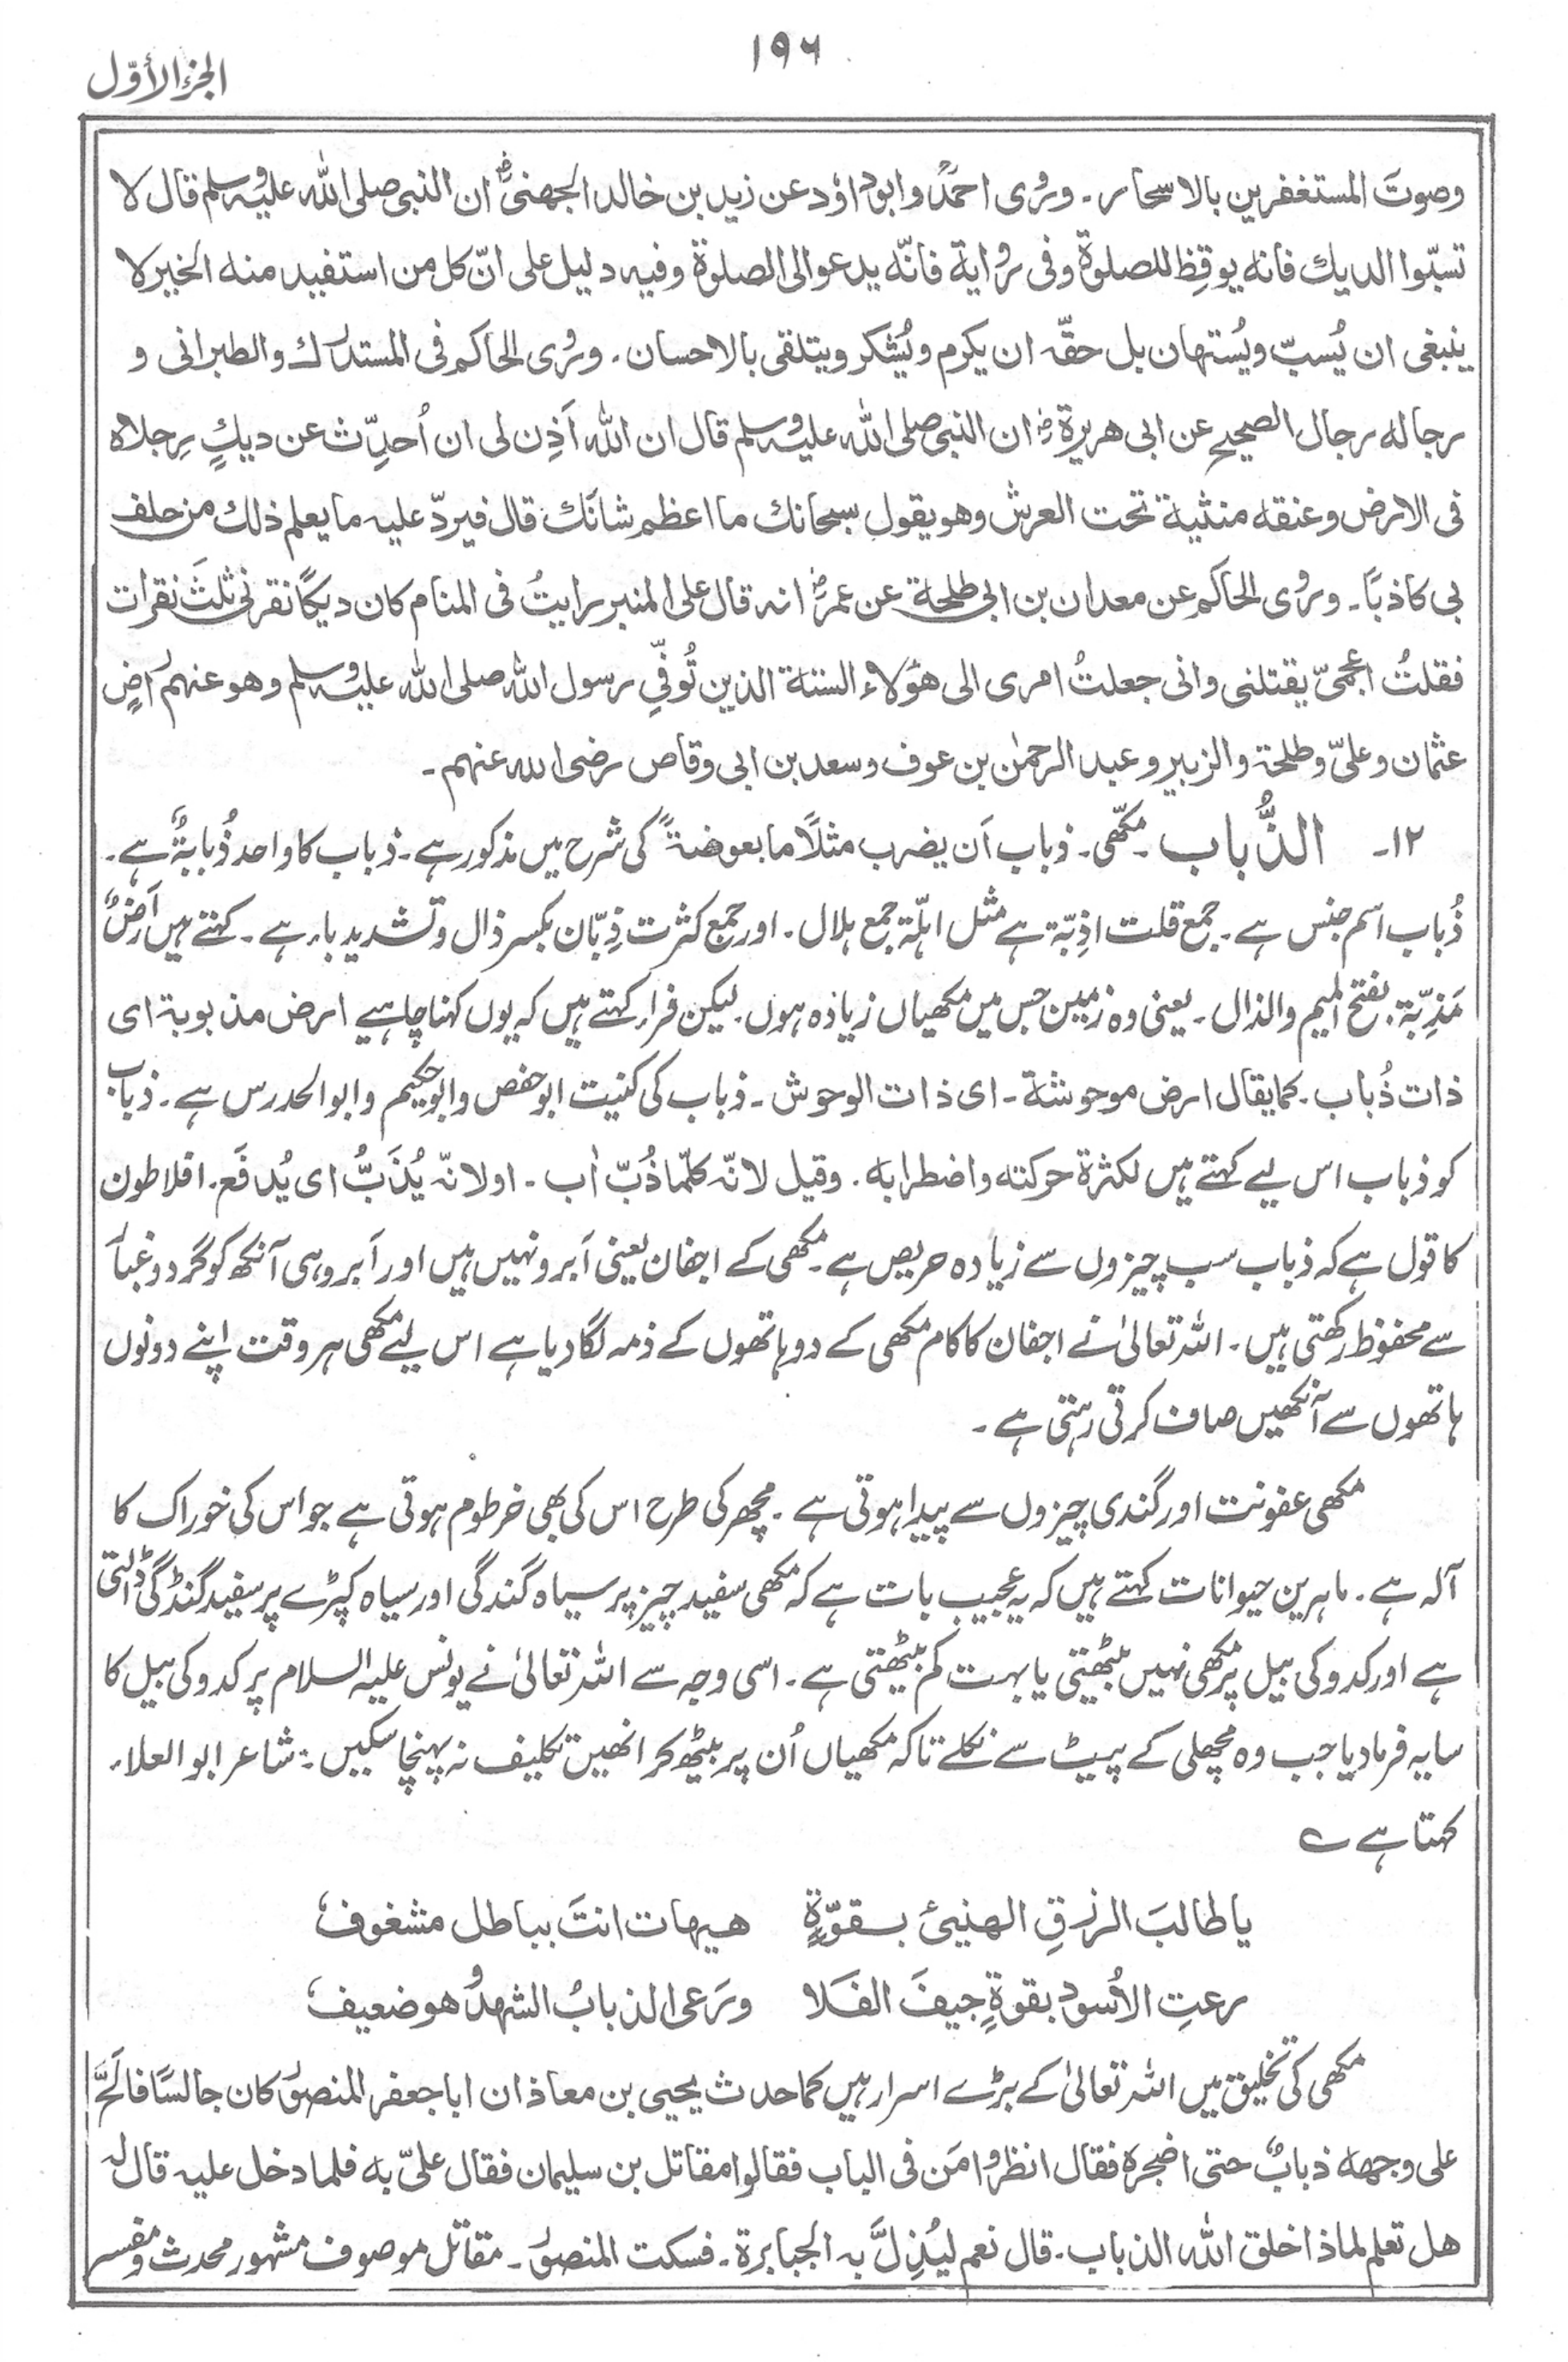 ۱۹۶
الجزء الأوّل
وصوتَ المستغفرين بالاسحار۔ وروٰی احمدؒ وابوداؤد عن زيد بن خالد الجهنیؓ ان النبی صلی اللّٰه عليه وسلم قال لا
تسبّوا الديك فانه يوقِظ للصلوٰة وفی رواية فانّه يدعو الی الصلوٰة وفيه دليل علی انّ كل من استفيد منه الخير لا
ينبغی ان يُسبّ ويُستهان بل حقّه ان يكرم ويُشكر ويتلقی بالاحسان۔ وروٰی الحاكم فی المستدرك والطبرانی و
رجاله رجال الصحيح عن ابی هريرةؓ ان النبی صلی اللّٰه عليه وسلم قال ان اللّٰه اَذِن لی ان اُحدِّث عن ديكٍ رِجلاه
فی الارض وعنقه منثية تحت العرش وهو يقول سبحانك ما اعظم شانَك قال فيردّ عليه ما يعلم ذلك من حلف
بی كاذبًا۔ وروٰی الحاكم عن معدان بن ابی طلحة عن عمرؓ انه قال علی المنبر رايتُ فی المنام كان ديكًا نقرنی ثلٰثَ نقرات
فقلتُ اعجمیّ يقتلنی وانی جعلتُ امری الی هؤلاء الستة الذين تُوفّی رسول اللّٰه صلی اللّٰه عليه وسلم وهو عنهم راضٍ
عثمان وعلیّ وطلحة والزبير وعبد الرحمٰن بن عوف وسعد بن ابی وقاص رضی اللّٰه عنهم۔
۱۲۔ الذُّباب۔ مکّھی۔ ذباب اَن يضرب مثلًا ما بعوضةً کی شرح میں مذکور ہے۔ ذباب کا واحد ذُبابةٌ ہے۔
ذُباب اسم جنس ہے۔ جمع قلت اذِبّة ہے مثل اہلّة جمع ہلال۔ اور جمع کثرت ذِبّان بکسر ذال وتشدید باء ہے۔ کہتے ہیں اَرضٌ
مَذِبّة بفتح المیم والذال۔ یعنی وہ زمین جس میں مکھیاں زیادہ ہوں۔ لیکن فراء کہتے ہیں کہ یوں کہنا چاہیے ارض مذبوبة ای
ذات ذُباب۔ كما يقال ارض موحوشة۔ ای ذات الوحوش۔ ذباب کی کنیت ابوحفص وابوحکیم وابوالحدرس ہے۔ ذباب
کو ذباب اس لیے کہتے ہیں لكثرة حركته واضطرابه۔ وقيل لانّه كلّما ذُبّ اٰب۔ اولانّه يُذَبُّ ای يُدفَع۔ افلاطون
کا قول ہے کہ ذباب سب چیزوں سے زیادہ حریص ہے۔ مکھی کے اجفان یعنی اَبرو نہیں ہیں اور اَبرو ہی آنکھ کو گرد و غبار
سے محفوظ رکھتی ہیں۔ اللہ تعالیٰ نے اجفان کا کام مکھی کے دو ہاتھوں کے ذمہ لگا دیا ہے اس لیے مکھی ہر وقت اپنے دونوں
ہاتھوں سے آنکھیں صاف کرتی رہتی ہے۔
مکھی عفونت اور گندی چیزوں سے پیدا ہوتی ہے۔ مچھر کی طرح اس کی بھی خرطوم ہوتی ہے جو اس کی خوراک کا
آلہ ہے۔ ماہرین حیوانات کہتے ہیں کہ یہ عجیب بات ہے کہ مکھی سفید چیز پر سیاہ گندگی اور سیاہ کپڑے پر سفید گندگی ڈالتی
ہے اور کدو کی بیل پر مکھی نہیں بیٹھتی یا بہت کم بیٹھتی ہے۔ اسی وجہ سے اللہ تعالیٰ نے یونس علیہ السلام پر کدو کی بیل کا
سایہ فرما دیا جب وہ مچھلی کے پیٹ سے نکلے تاکہ مکھیاں اُن پر بیٹھ کر انھیں تکلیف نہ پہنچا سکیں۔ شاعر ابوالعلاء
کہتا ہے ؎
يا طالبَ الرزقِ الهنیئ بقوّةٍ هيهات انتَ بباطل مشغوفٗ
رعتِ الأسود بقوةٍ جيفَ الفَلا ورَعی الذبابُ الشهدَ وهو ضعيفٗ
مکھی کی تخلیق میں اللہ تعالیٰ کے بڑے اسرار ہیں كما حدث يحيى بن معاذ ان ابا جعفر المنصور كان جالسًا فالَحَّ
علی وجهه ذبابٌ حتی اضجره فقال انظروا مَن فی الباب فقالوا مقاتل بن سليمان فقال علیّ به فلما دخل عليه قال له
هل تعلم لماذا خلق اللّٰه الذباب۔ قال نعم ليُذِلَّ به الجبابرة۔ فسكت المنصور۔ مقاتل موصوف مشہور محدث و مفسر